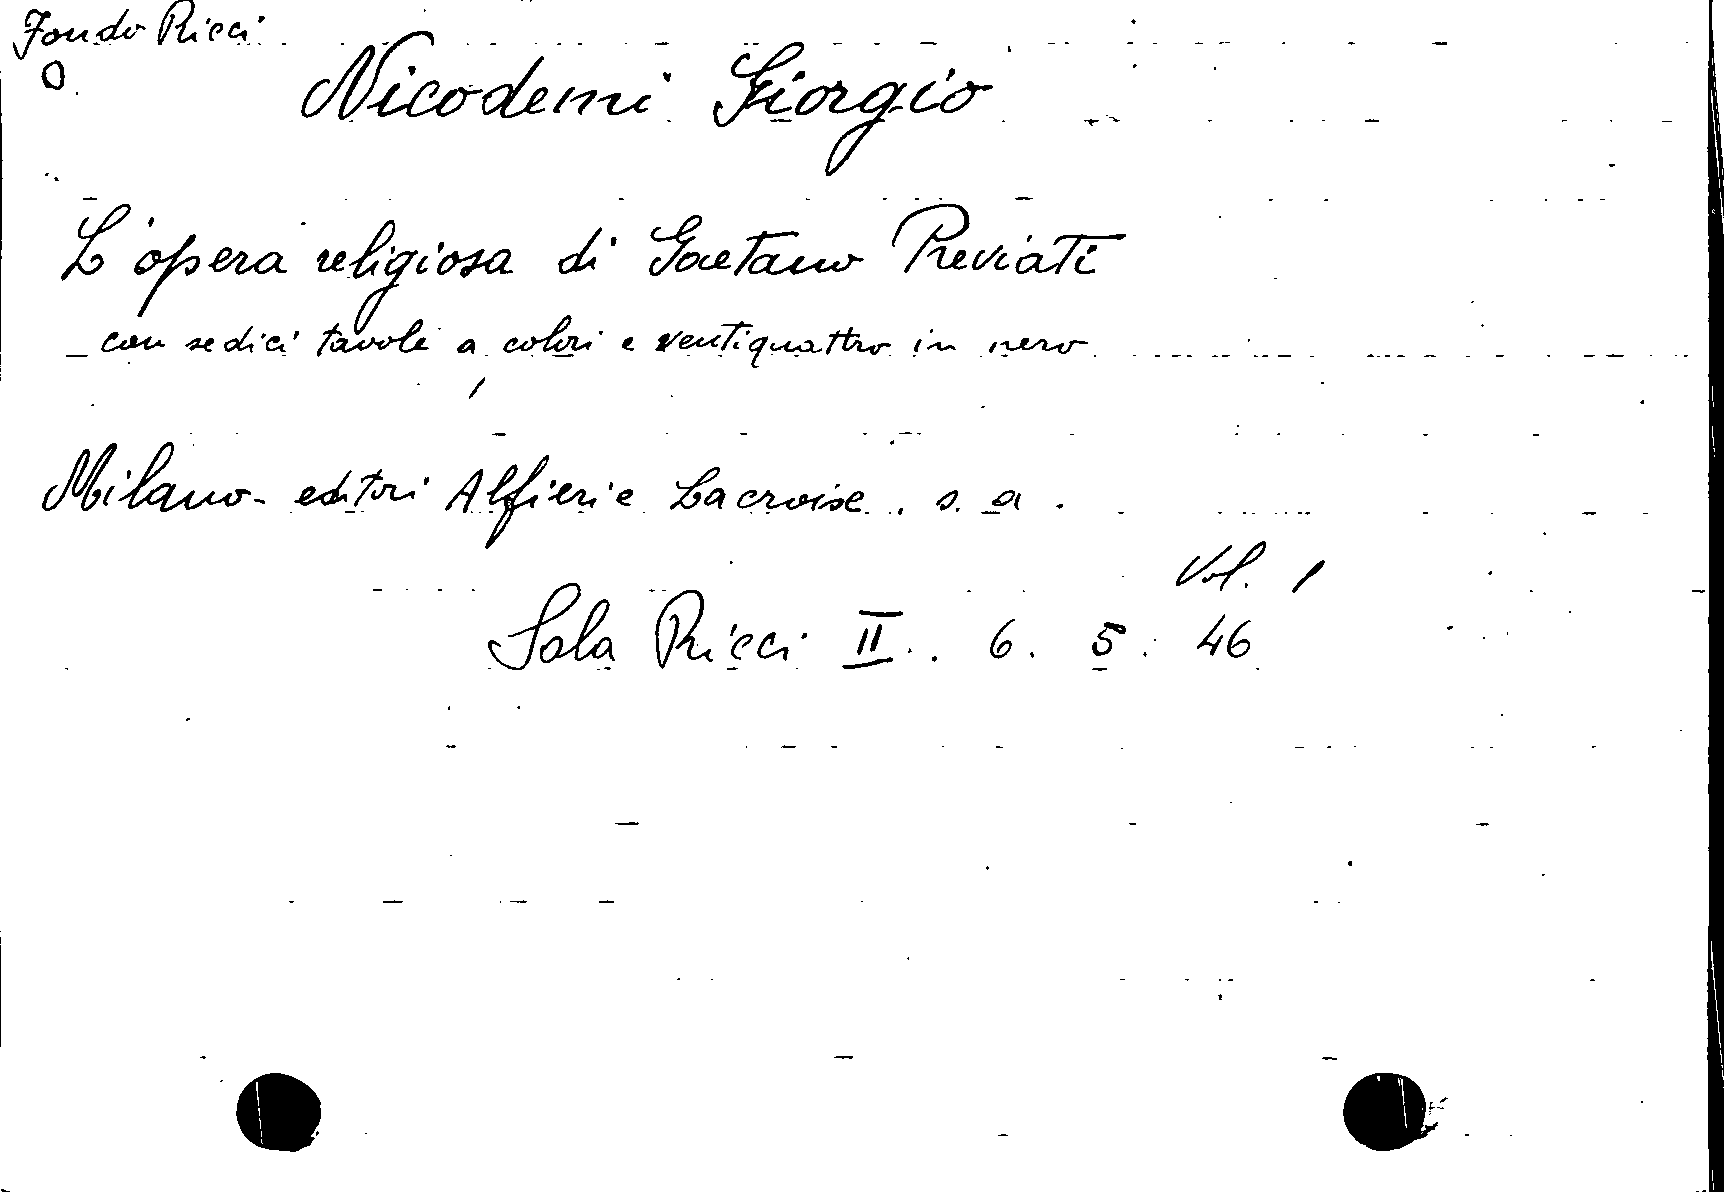 Fondo Ricci
O
Nicodemi Giorgio
L'opera religiosa di Gaetano Previati
- con sedici tavole a colori e ventiquattro in nero
Milano - editori Alfieri e Lacroixe. s. a.
Vol. 1
Sala Ricci II. 6. 5. 46